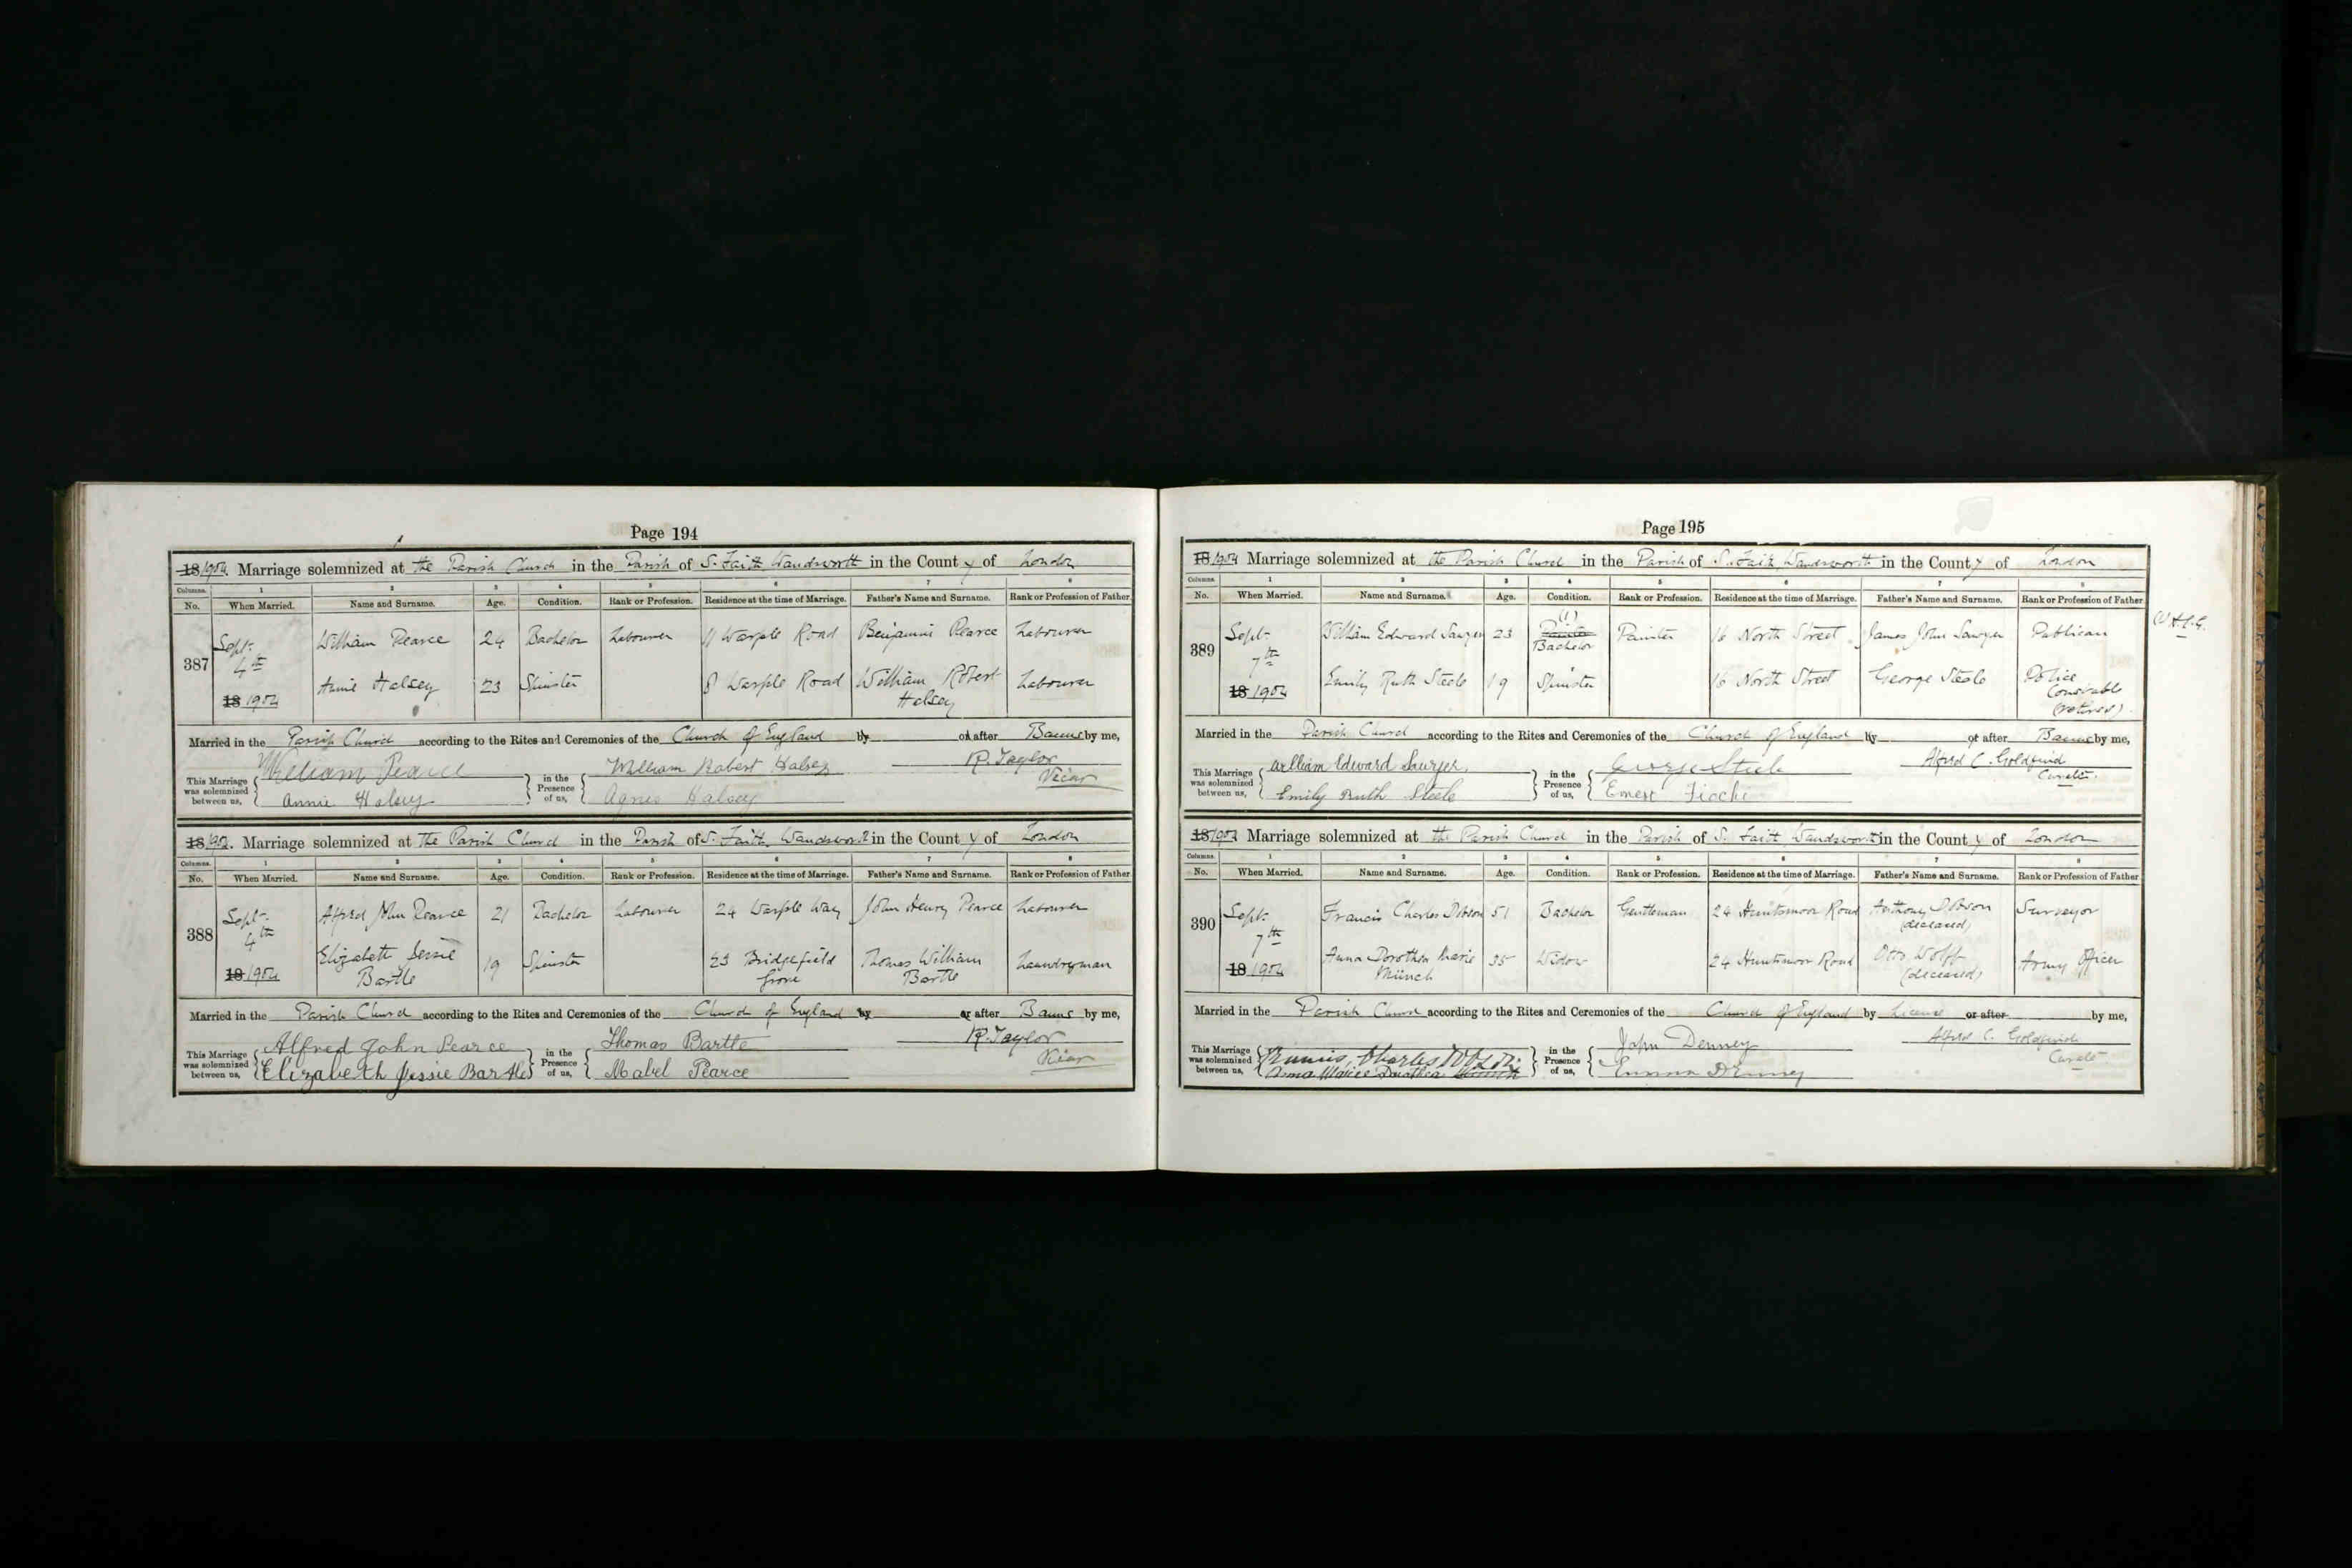 Page 194
18/1904. Marriage solemnized at the Parish Church in the Parish of S. Faith Wandsworth in the County of London
Columns. 1 2 3 4 5 6 7 8
No. When Married. Name and Surname. Age. Condition. Rank or Profession. Residence at the time of Marriage. Father's Name and Surname. Rank or Profession of Father.
387 Sept. 4th 18 1904 William Pearce 24 Bachelor Labourer 11 Warple Road Benjamin Pearce Labourer
Annie Halsey 23 Spinster 8 Warple Road William Robert Halsey Labourer
Married in the Parish Church according to the Rites and Ceremonies of the Church of England by or after Banns by me,
This Marriage was solemnized between us, William Pearce Annie Halsey in the Presence of us, William Robert Halsey Agnes Halsey R. Taylor Vicar
18/1904. Marriage solemnized at the Parish Church in the Parish of S. Faith, Wandsworth in the County of London
Columns. 1 2 3 4 5 6 7 8
No. When Married. Name and Surname. Age. Condition. Rank or Profession. Residence at the time of Marriage. Father's Name and Surname. Rank or Profession of Father.
388 Sept. 4th 18 1904 Alfred John Pearce 21 Bachelor Labourer 24 Warple Way John Henry Pearce Labourer
Elizabeth Jessie Bartle 19 Spinster 23 Bridgefield Grove Thomas William Bartle Laundryman
Married in the Parish Church according to the Rites and Ceremonies of the Church of England by or after Banns by me,
This Marriage was solemnized between us, Alfred John Pearce Elizabeth Jessie Bartle in the Presence of us, Thomas Bartle Mabel Pearce R. Taylor Vicar
Page 195
18/1904 Marriage solemnized at the Parish Church in the Parish of S. Faith, Wandsworth in the County of London
Columns. 1 2 3 4 5 6 7 8
No. When Married. Name and Surname. Age. Condition. Rank or Profession. Residence at the time of Marriage. Father's Name and Surname. Rank or Profession of Father
389 Sept. 7th 18 1904 William Edward Sawyer 23 (1) Painter Bachelor Painter 16 North Street James John Sawyer Publican
Emily Ruth Steele 19 Spinster 16 North Street George Steele Police Constable (retired).
Married in the Parish Church according to the Rites and Ceremonies of the Church of England by or after Banns by me,
This Marriage was solemnized between us, William Edward Sawyer Emily Ruth Steele in the Presence of us, George Steele Ernest Alfred C. Goldfinch Curate.
18/1904 Marriage solemnized at the Parish Church in the Parish of S. Faith Wandsworth in the County of London
Columns. 1 2 3 4 5 6 7 8
No. When Married. Name and Surname. Age. Condition. Rank or Profession. Residence at the time of Marriage. Father's Name and Surname. Rank or Profession of Father
390 Sept. 7th 18 1904 Francis Charles Dobson 51 Bachelor Gentleman 24 Huntsmoor Road Anthony Dobson (deceased) Surveyor
Anna Dorothea Marie Münch 35 Widow 24 Huntsmoor Road Otto Wolff (deceased) Army Officer
Married in the Parish Church according to the Rites and Ceremonies of the Church of England by License or after by me,
This Marriage was solemnized between us, Francis Charles Dobson Anna Marie Dorothea Münch in the Presence of us, John Denney Emma Denney Alfred C. Goldfinch Curate